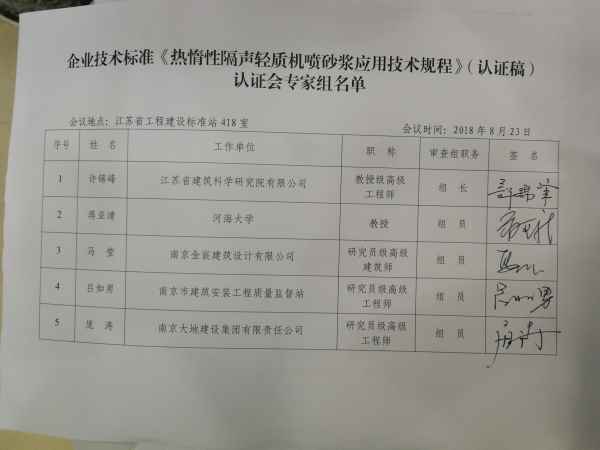 企业技术标准《热惰性隔声轻质机喷砂浆应用技术规程》（认证稿）
认证会专家组名单
会议地点：江苏省工程建设标准站 418 室 会议时间：2018 年 8 月 23 日
序号 姓 名 工作单位 职 称 审查组职务 签 名
1 许锦峰 江苏省建筑科学研究院有限公司 教授级高级
工程师 组 长
2 蒋亚清 河海大学 教授 组 员
3 马 莹 南京金宸建筑设计有限公司 研究员级高级
建筑师 组 员
4 吕如男 南京市建筑安装工程质量监督站 研究员级高级
工程师 组 员
5 庞 涛 南京大地建设集团有限责任公司 研究员级高级
工程师 组 员